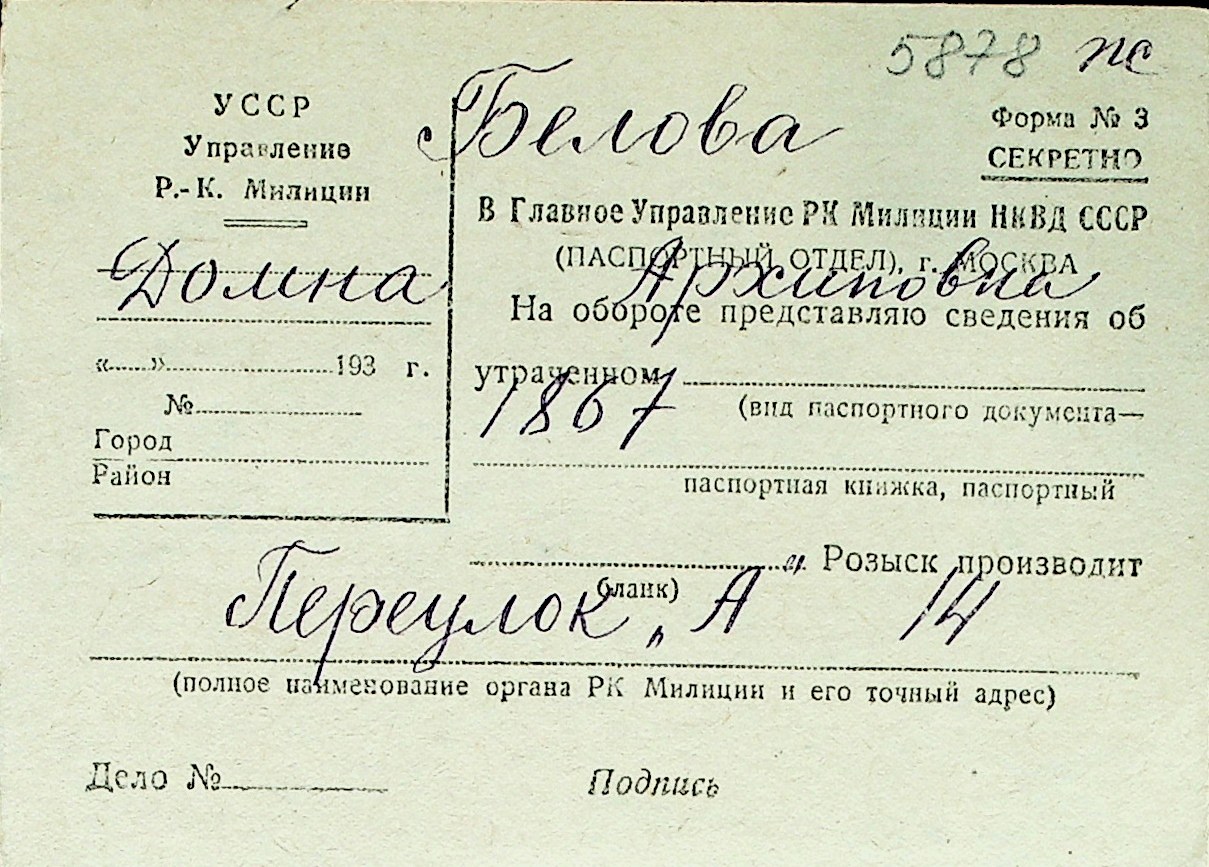 5878 пс
УССР
Управление
Р.-К. Милиции
Белова
Форма № 3
СЕКРЕТНО
В Главное Управление РК Милиции НКВД СССР
(ПАСПОРТНЫЙ ОТДЕЛ), г. МОСКВА
Домна Архиповна
На обороте представляю сведения об
утраченном
«......» 193 г.
№
Город
Район
1867
(вид паспортного документа—
паспортная книжка, паспортный
бланк)
Розыск производит
Переулок „А 14
(полное наименование органа РК Милиции и его точный адрес)
Дело №
Подпись